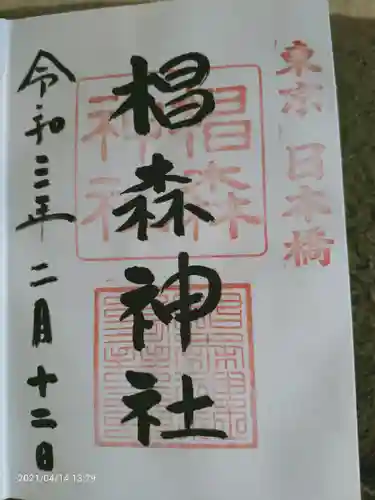 東京 日本橋
椙森神社
椙森神社
令和三年二月十二日
2021/04/14 13:29